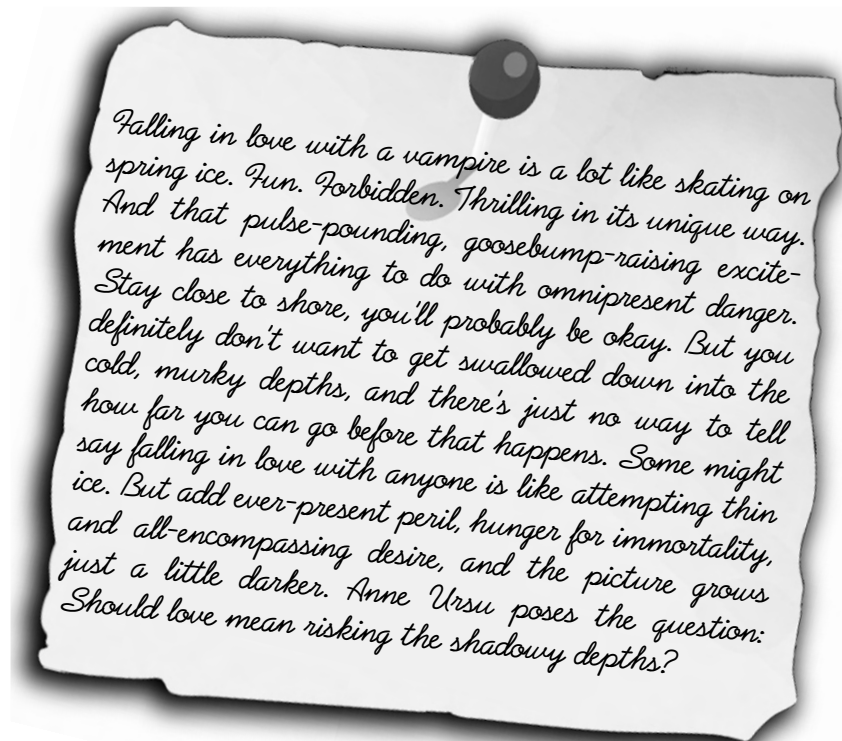 Falling in love with a vampire is a lot like skating on
spring ice. Fun. Forbidden. Thrilling in its unique way.
And that pulse-pounding, goosebump-raising excite-
ment has everything to do with omnipresent danger.
Stay close to shore, you'll probably be okay. But you
definitely don't want to get swallowed down into the
cold, murky depths, and there's just no way to tell
how far you can go before that happens. Some might
say falling in love with anyone is like attempting thin
ice. But add ever-present peril, hunger for immortality,
and all-encompassing desire, and the picture grows
just a little darker. Anne Ursu poses the question:
Should love mean risking the shadowy depths?